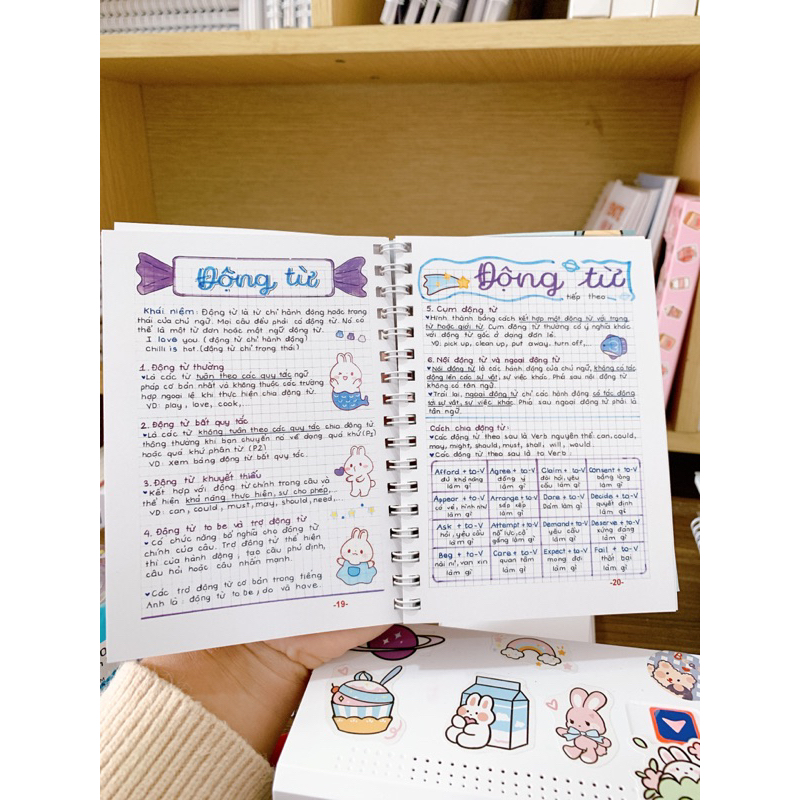 Động từ
Khái niệm: Động từ là từ chỉ hành động hoặc trạng
thái của chủ ngữ. Mọi câu đều phải có động từ. Nó có
thể là một từ đơn hoặc một ngữ động từ.
I love you (động từ chỉ hành động)
Chilli is hot (động từ chỉ trạng thái)
1. Động từ thường
♥Là các từ tuân theo các quy tắc ngữ
pháp cơ bản nhất và không thuộc các trường
hợp ngoại lệ khi thực hiện chia động từ.
VD: play, love, cook,...
2. Động từ bất quy tắc
♥Là các từ không tuân theo các quy tắc chia động từ
thông thường khi bạn chuyển nó về dạng quá khứ (P2)
hoặc quá khứ phân từ (P2)
VD: xem bảng động từ bất quy tắc.
3. Động từ khuyết thiếu
♥Kết hợp với động từ chính trong câu và
thể hiện khả năng thực hiện, sự cho phép,...
VD: can, could, must, may, should, need,...
4. Động từ to be và trợ động từ
♥Có chức năng bổ nghĩa cho động từ
chính của câu. Trợ động từ thể hiện
thì của hành động, tạo câu phủ định,
câu hỏi hoặc câu nhấn mạnh.
♥Các trợ động từ cơ bản trong tiếng
Anh là: động từ to be, do và have.
-19-
Động từ
tiếp theo
5. Cụm động từ
♥Hình thành bằng cách kết hợp một động từ với trạng
từ hoặc giới từ. Cụm động từ thường có ý nghĩa khác
với động từ gốc ở dạng đơn lẻ.
VD: pick up, clean up, put away, turn off,...
6. Nội động từ và ngoại động từ
♥Nội động từ là các hành động của chủ ngữ, không có tác
động lên các sự vật, sự việc khác. Phía sau nội động từ
không có tân ngữ.
♥Trái lại, ngoại động từ chỉ các hành động có tác động
tới sự vật, sự việc khác. Phía sau ngoại động từ phải là
tân ngữ.
Cách chia động từ:
♥Các động từ theo sau là Verb nguyên thể: can, could,
may, might, should, must, shall, will, would.
♥Các động từ theo sau là to Verb:
Afford + to-V Agree + to-V Claim + to-V Consent + to-V
đủ khả năng đồng ý đòi hỏi, yêu bằng lòng
làm gì làm gì cầu làm gì làm gì
Appear + to-V Arrange + to-V Dare + to-V Decide + to-V
có vẻ, hình như sắp xếp Dám làm gì quyết định
làm gì làm gì làm gì
Ask + to-V Attempt + to-V Demand + to-V Deserve + to-V
hỏi, yêu cầu nỗ lực, cố yêu cầu xứng đáng
làm gì gắng làm gì làm gì làm gì
Beg + to-V Care + to-V Expect + to-V Fail + to-V
nài nỉ, van xin quan tâm mong đợi thất bại
làm gì làm gì làm gì làm gì
-20-